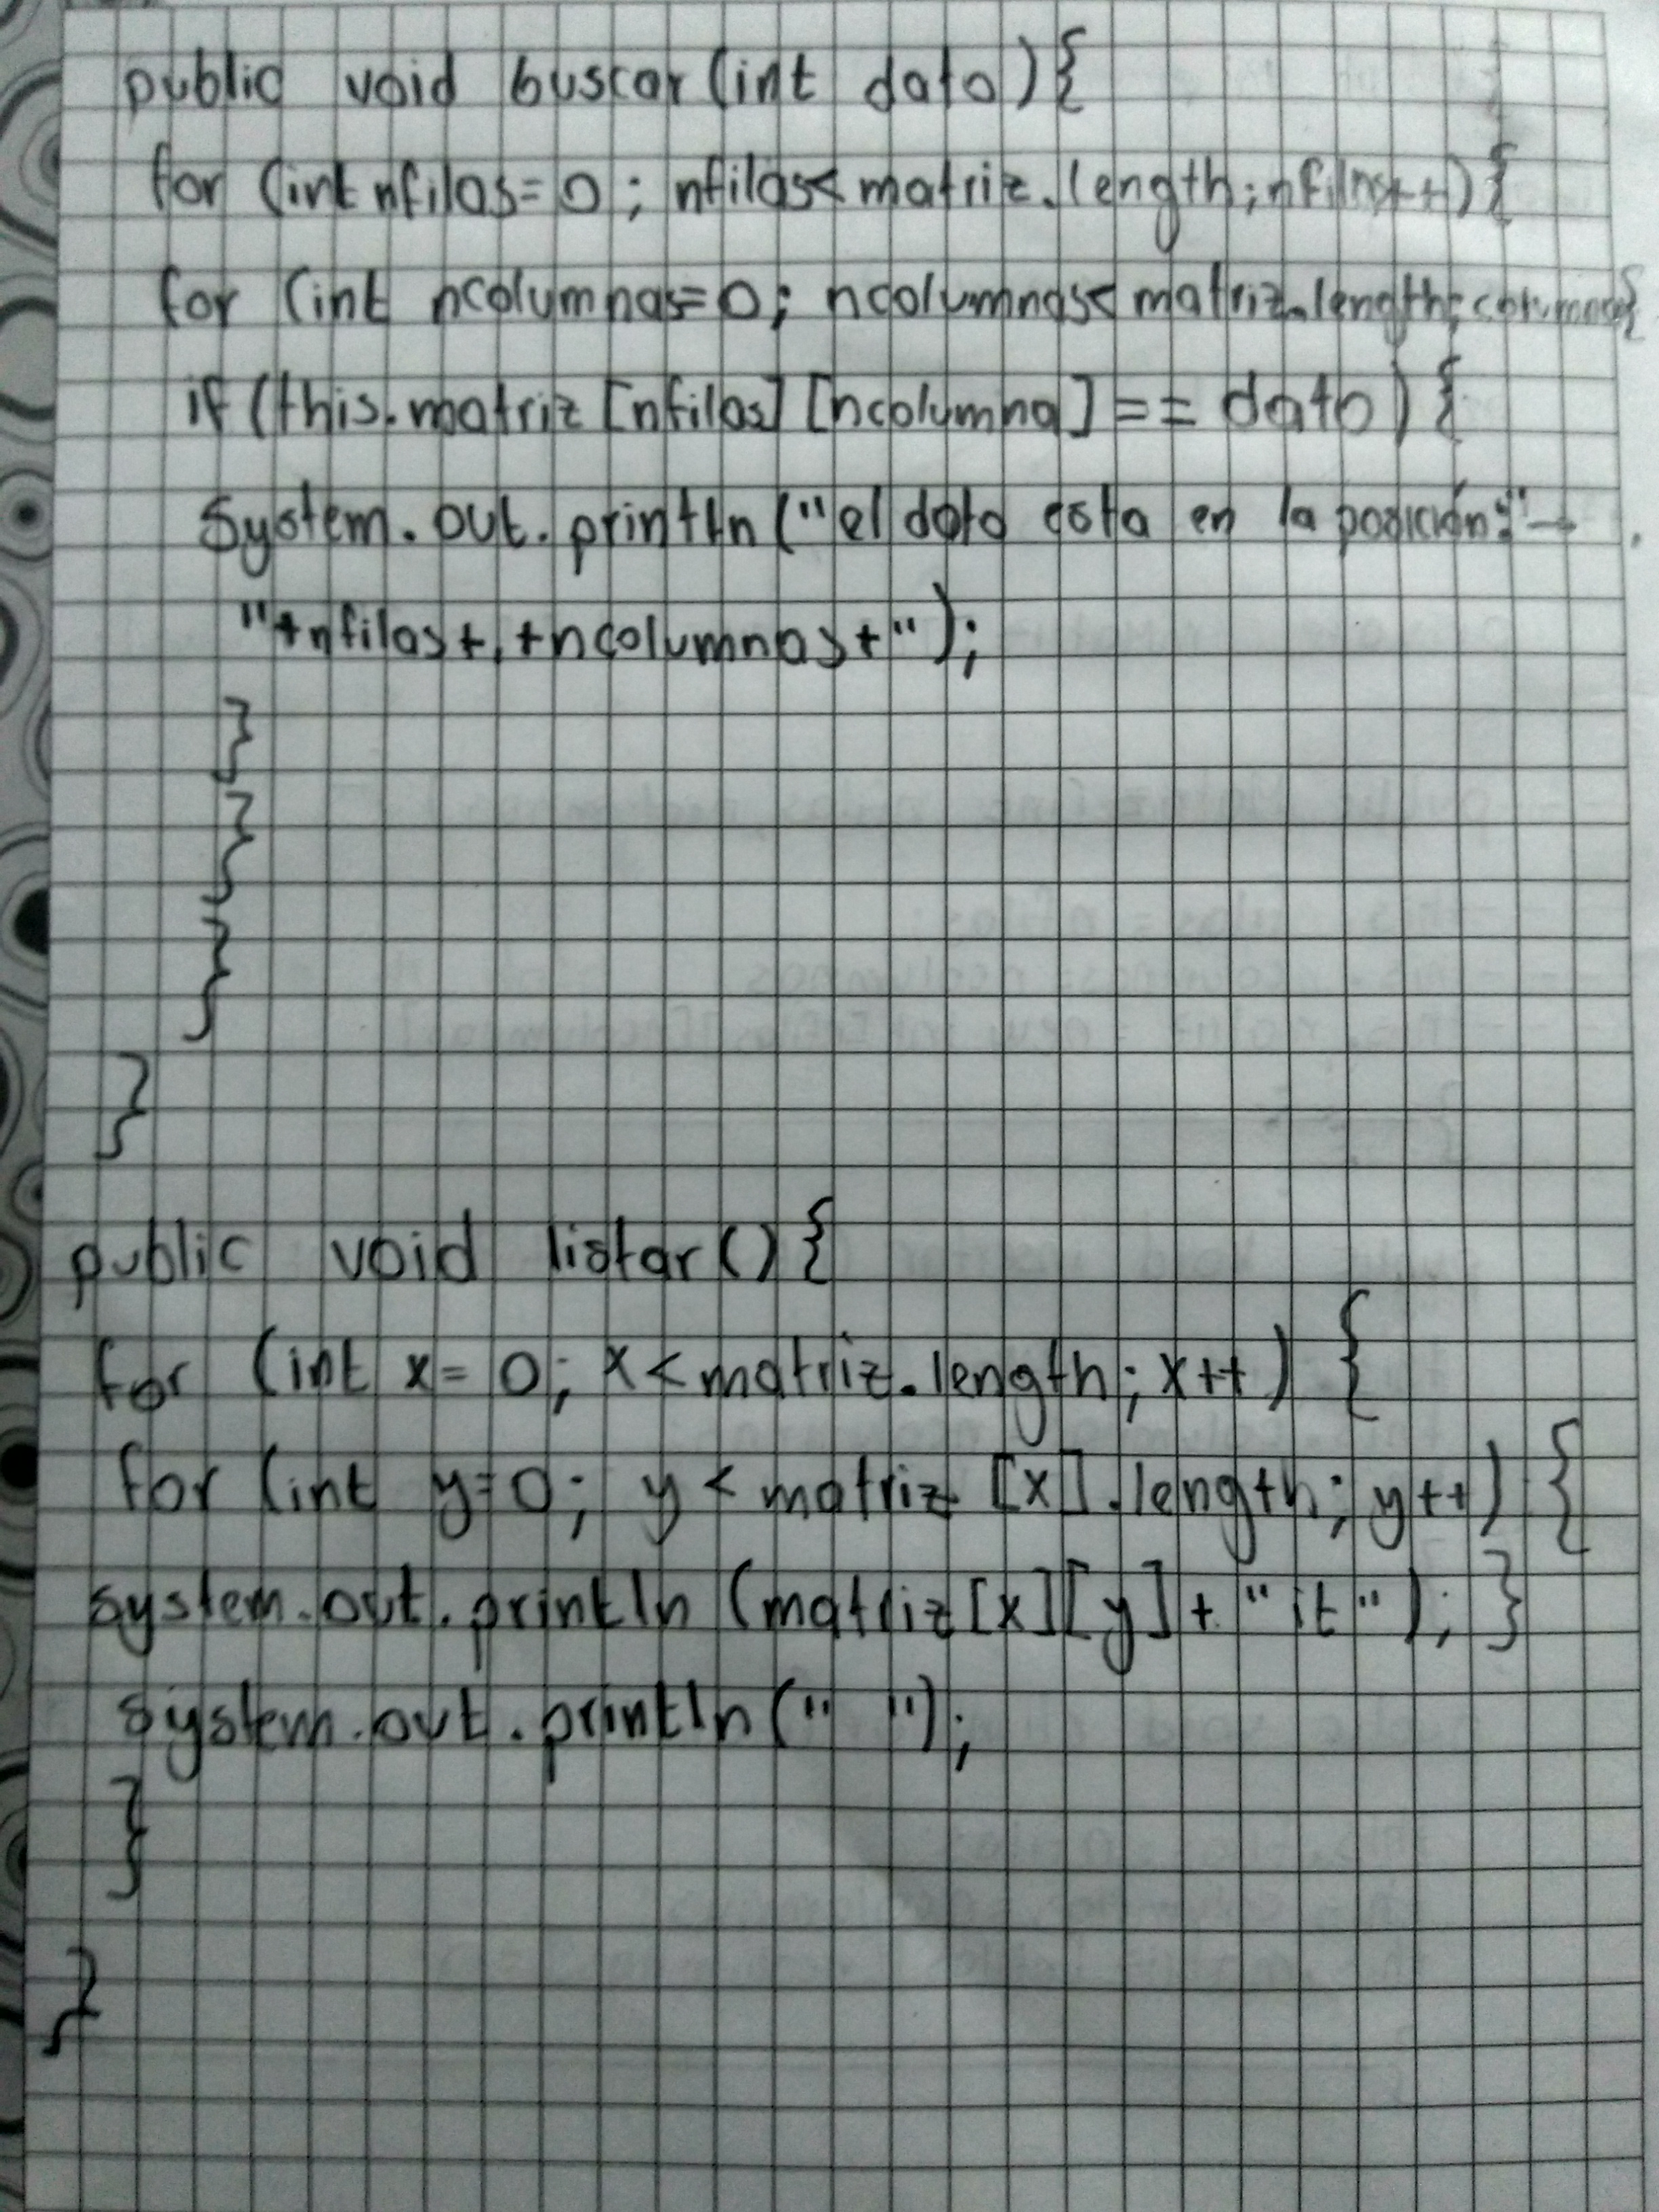 public void buscar (int dato){
for (int nfilas=0; nfilas<matriz.length; nfilas++){
for (int ncolumnas=0; ncolumnas<matriz.length;columnas{
if (this.matriz [nfilas] [ncolumna] == dato) {
System.out.println ("el dato esta en la posición:"
"+nfilas+,+ncolumnas+");
}
}
}
}
public void listar() {
for (int x= 0; x<matriz.length; x++) {
for (int y=0; y < matriz [x].length; y++) {
system.out.println (matriz[x][y]+ "it"); }
system.out.println(" ");
}
}